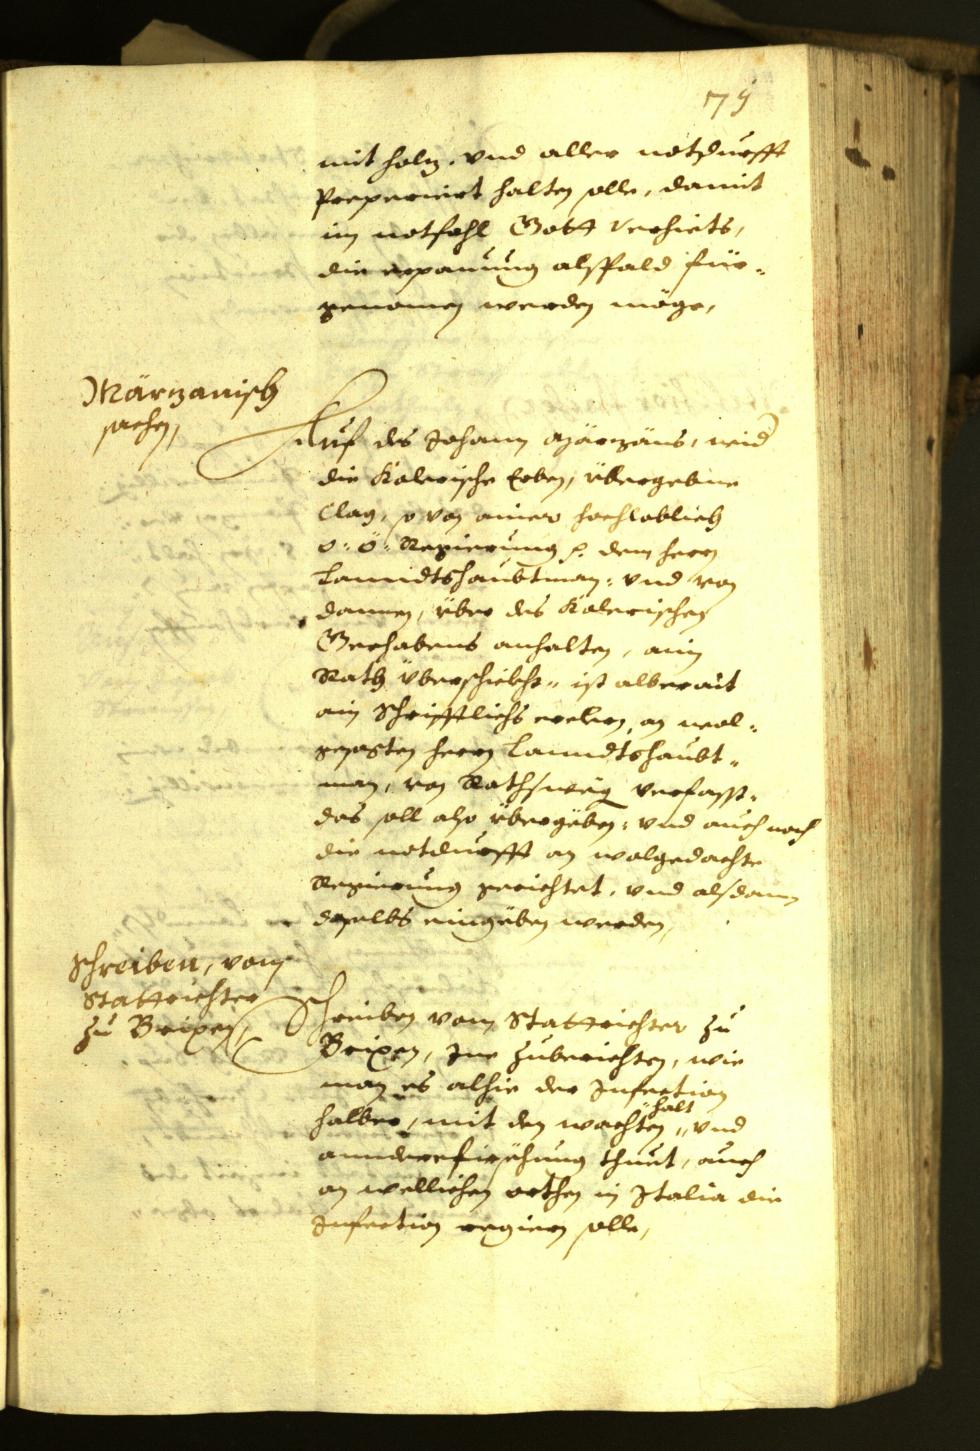 75
mit holz, vnd aller notdurfft
Prepariert halten solle, damit
im notfahl Gott verhiets,
die alspald für„
genomen werden möge,
Märzanisch
sachen,
Auf des Johann Märzäns, wid
die Kalerische Erben, übergebne
Clag, so von ainer hochloblich
o: ö: Regierung p. dem herrn
Lanndtshaubtman, vnd von
dannen, über des Kalerischen
Gerhabens anhalten, ain
Rath überschickht„ ist alberait
ain Schrifftlichs an wol„
gesagten herrn Lanndtshaubt„
man, von Rathswëg verfasst„
das soll also übergëben„ vnd auch noch
die notdurfft an wolgedachte
Regierung gerichtet, vnd alsdann
daselbs eingëben werden,
Schreiben, vom
Stattrichter
zu Brixen,
Schreiben vom Stattrichter zu
Brixen, Ine zuberichten, wie
man es alhie der Infection
halber, mit den wachten „halt„ vnd
annderefirsëhung thuet, auch
an wellichen orthen in Italia die
Infection regiern solle,